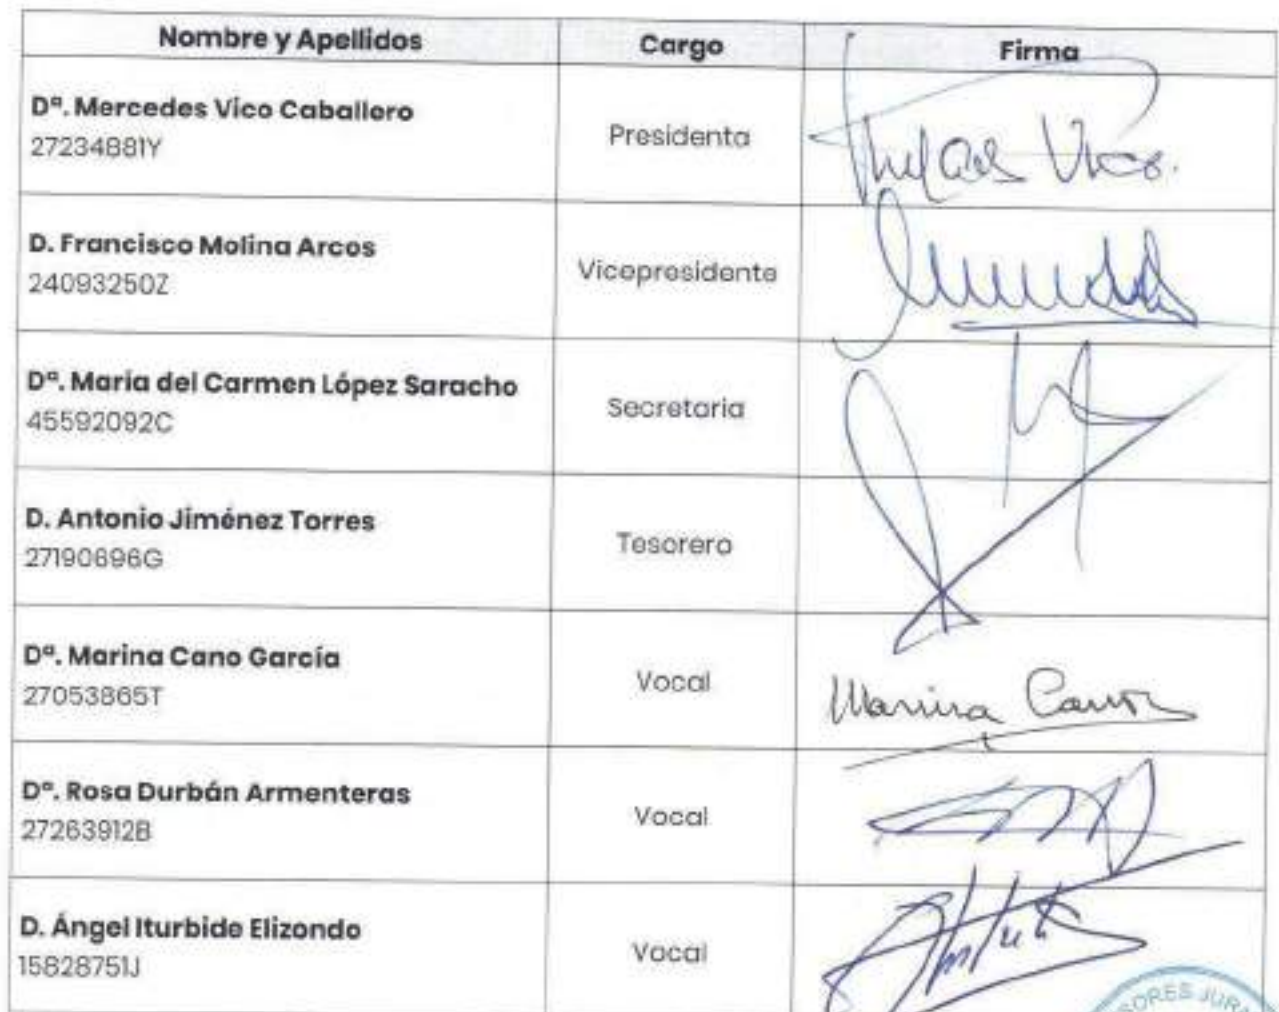 Nombre y Apellidos Cargo Firma
Dª. Mercedes Vico Caballero
27234881Y
Presidenta
Vico.
D. Francisco Molina Arcos
24093250Z
Vicepresidente
Dª. Maria del Carmen López Saracho
45592092C
Secretaria
D. Antonio Jiménez Torres
27190696G
Tesorero
Dª. Marina Cano García
27053865T
Vocal
Marina Cano
Dª. Rosa Durbán Armenteras
27263912B
Vocal
D. Ángel Iturbide Elizondo
15828751J
Vocal